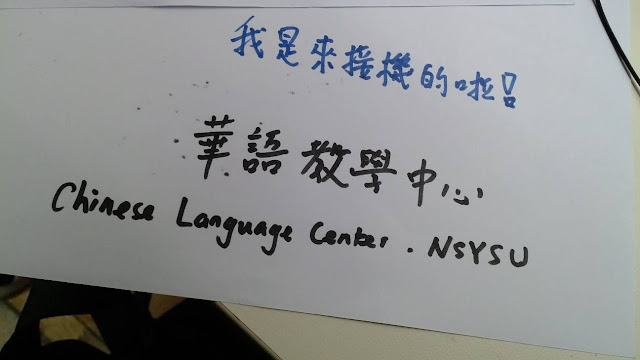 我是來接機的啦!!
華語教學中心
Chinese Language Center . NSYSU